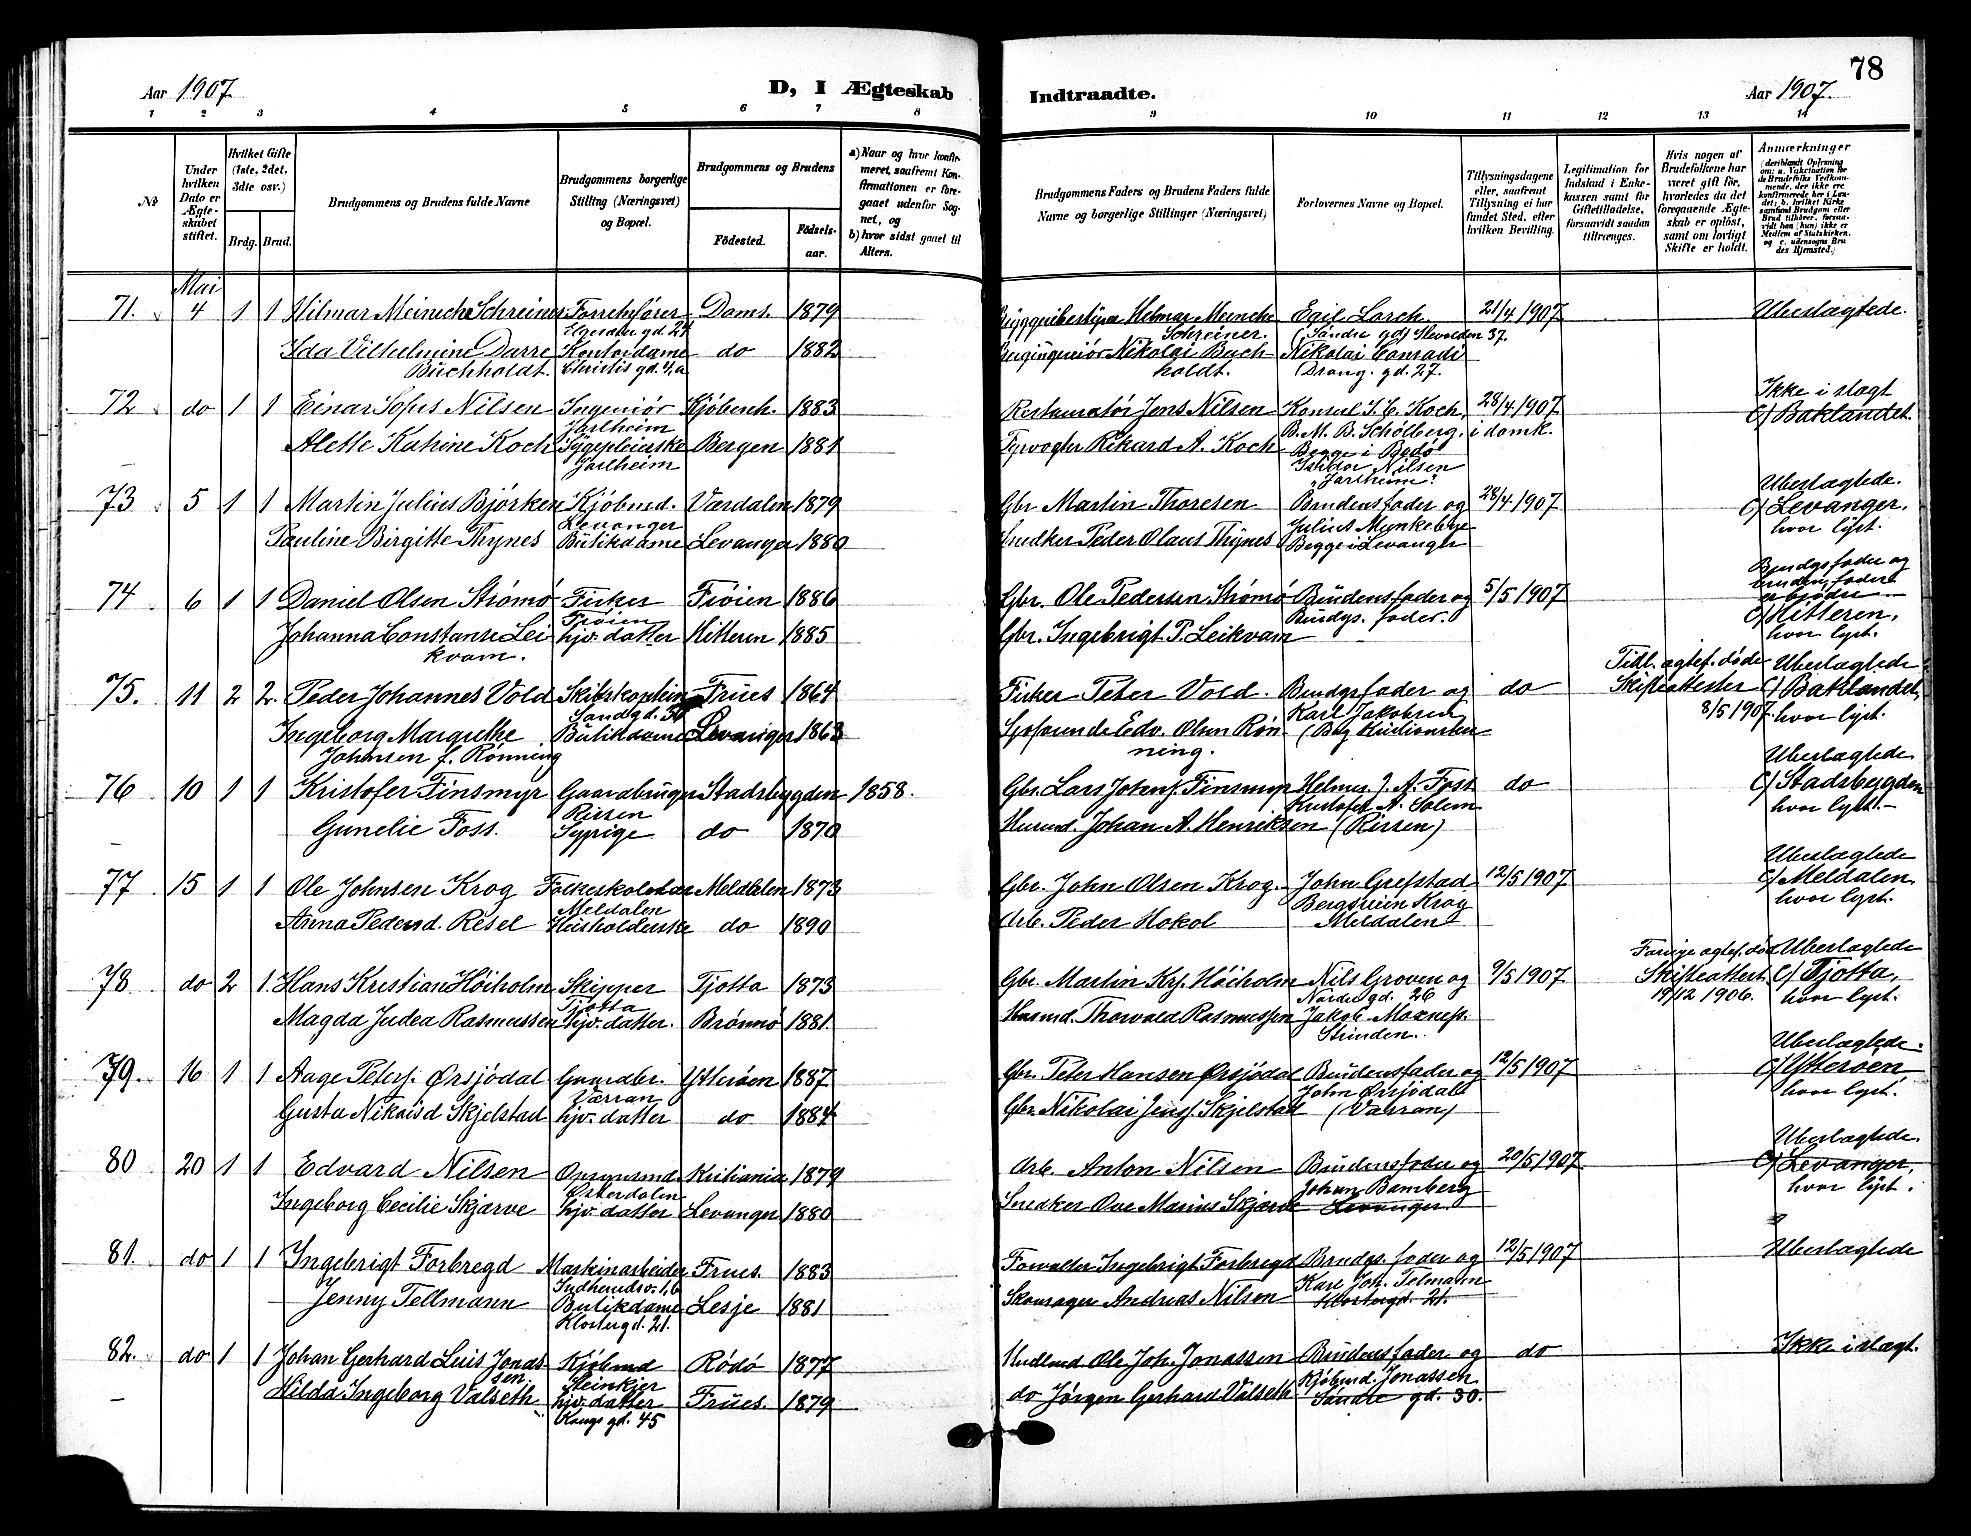 78
Aar 1907.
D, I Ægteskab
Indtraadte.
Aar 1907.
1 2 3 4 5 6 7 8
9 10 11 12 13 14
No
Under hvilken Dato er Ægteskabet stiftet.
Hvilket Gifte (1ste, 2det, 3die osv.)
Brdg. Brud.
Brudgommens og Brudens fulde Navne
Brudgommens borgerlige Stilling (Næringsvei) og Bopæl.
Brudgommens og Brudens
Fødested.
Fødselsaar.
a) Naar og hvor konfirmeret, saafremt Konfirmationen er foregaaet udenfor Sognet, og
b) hvor sidst gaaet til Alters.
Brudgommens Faders og Brudens Faders fulde Navne og borgerlige Stillinger (Næringsvei)
Forlovernes Navne og Bopæl.
Tillysningsdagene eller, saafremt Tillysning ei har fundet Sted, efter hvilken Bevilling.
Legitimation for Indskud i Enkekassen samt for Giftetilladelse, forsaavidt saadan tiltrænges.
Hvis nogen af Brudefolkene har været gift før, hvorledes da det foregaaende Ægteskab er opløst, samt om lovligt Skifte er holdt.
Anmærkninger
Mai
71. 4 1 1 Hilmar Meincke Schreiner Doms. 1879
Helmar Meincke Schreiner. Egil Lorck. 21/4 1907 Ubeslægtede.
(Søndre gd) 37.
Ida Vilhelmine Darre Buchholdt. Kontordame do 1882
Nikolai Buchholdt. Nikolai Conradi
(Drong. gd. 27.
72 do 1 1 Einar Sofus Nilsen Ingeniør Jarlheim Kjøbenh. 1883
Restauratør Jens Nilsen Konsul J. C. Koch, 28/4 1907 Ikke i slægt
C/ Baklandet.
Alette Katrine Koch Sygepleierske Jarlheim Bergen 1881
Rikard A. Koch B. M. B. Schölberg, i domk.
Begge i Bodø
Nilsen
"Jarlheim"
73 5 1 1 Martin Julius Bjørken Kjøbmd. Levanger Værdalen 1879
Gbr. Martin Thoresen Brudens fader og 28/4 1907 Ubeslægtede.
C/ Levanger,
hvor lyst.
Pauline Birgitte Thynes Butikdame Levanger 1880
Snedker Peder Olaus Thynes Julius Mynkebye
Begge i Levanger
74 6 1 1 Daniel Olsen Strømø Fisker Frøien Frøien 1886
Gbr. Ole Pedersen Strømø Brudens fader og 5/5 1907 Brudgs fader og
brudens fader
C/ Hitteren,
hvor lyst.
Johanna Constanse Leikvam. hjv. datter Hitteren 1885
Gbr. Ingebrigt P. Leikvam Brudgs. fader.
75. 11 2 2. Peder Johannes Vold Skibskaptein Sandgd. Frues 1864
Fisker Peter Vold. Brudgs fader og do Tidl. ægtef. døde Ubeslægtede
Skifteattester C/ Baklandet,
8/5 1907. hvor lyst.
Ingeborg Margrethe Johnsen f. Rønning Butikdame Levanger 1863
Edv. Olsen Rønning. Karl Jakobsen
76 10 1 1 Kristofer Finsmyr Gaardbruger Rissen Stadsbygden 1858.
Gbr. Lars Johns. Finsmyr Helmer J. A. Foss do Ubeslægtede
C/ Stadsbygden
hvor lyst.
Gunelie Foss. Sypige do 1870
Husmd. Johan A. Henriksen Kristofer A. Solem
(Rissen)
77 15 1 1 Ole Johnsen Krog Meldalen Meldalen 1873
Gbr. John Olsen Krog. John Grefstad 12/5 1907 Ubeslægtede
C/ Meldalen
hvor lyst.
Anna Pedersd. Resel Husholderske do 1890
Arb. Peder Hokol Bergsvein Krog
Meldalen
78 do 2 1. Hans Kristian Høiholm Skipper Tjøtta Tjotta 1873
Gbr. Martin Krs. Høiholm Nils Groven og 9/5 1907 Forrige ægtef. død Ubeslægtede
Nordregd. 26 Skifteattest C/ Tjøtta,
19/12 1906. hvor lyst.
Magda Judea Rasmussen hjv. datter. Brønnø 1881.
Husmd. Thorvald Rasmussen Jakob Moxness.
Strinden.
79. 16 1 1 Aage Peters. Ørsjødal Gaardbr. Værran Ytterøen 1887
Gbr. Peter Hansen Ørsjødal Brudens fader og 12/5 1907 Ubeslægtede.
C/ Ytterøen
hvor lyst.
Gusta Nikolaisd Skjelstad hjv. datter do 1884
Gbr. Nikolai Jens. Skjelstad John Ørsjødal
(Værran)
80 20 1 1 Edvard Nilsen Østerdalen Kristiania 1879
Arb. Anton Nilsen Brudens fader og 20/5 1907 Ubeslægtede.
C/ Levanger,
hvor lyst.
Ingeborg Cecilie Skjærve hjv. datter Levanger 1880
Snedker Ove Marius Skjærve Johan Bamberg
Levanger.
81. do 1 1 Ingebrigt Forbregd Maskinarbeider Frues. 1883
Forvalter Ingebrigt Forbregd Brudgs. fader og 12/5 1907 Ubeslægtede
Jenny Tellmann Butikdame Klostergd. 21. Lesje 1881
Skomager Andreas Nilsen Karl Joh. Telmann
Klostergd. 21.
82. do 1 1 Johan Gerhard Luis Jonassen Kjøbmd Steinkjer Rødø 1877
Ole Joh. Jonassen Brudens fader og do Ikke i slægt.
Hilda Ingeborg Valseth hjv. datter Kongs gd. 45 Frues. 1879
do Jørgen Gerhard Valseth Kjøbmd. Jonassen
Søndre gd. 30.